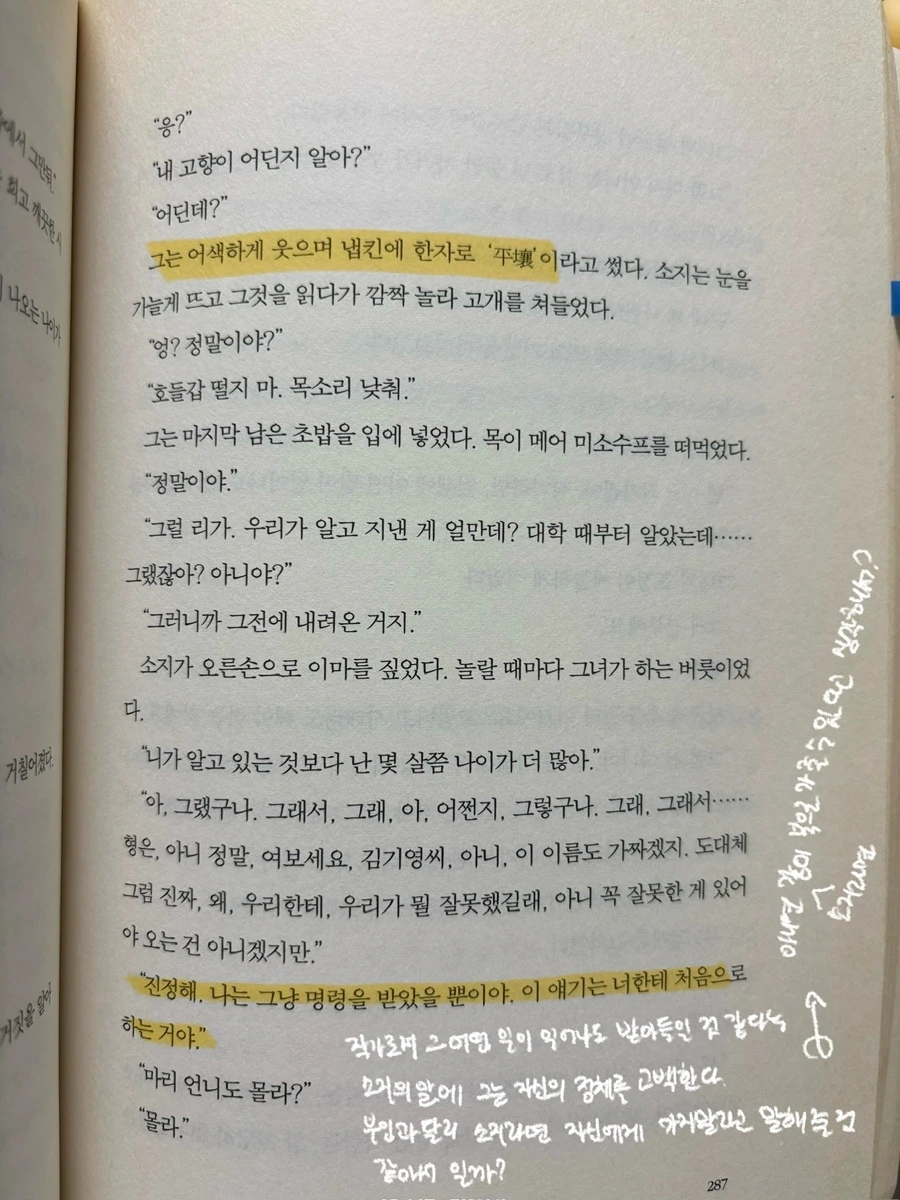 에서 그만둬."
희고 깨끗한 시
나오는 나이가
거칠어졌다.
거짓을 알아
"응?"
"내 고향이 어딘지 알아?"
"어딘데?"
그는 어색하게 웃으며 냅킨에 한자로 '平壤'이라고 썼다. 소지는 눈을
가늘게 뜨고 그것을 읽다가 깜짝 놀라 고개를 쳐들었다.
"엉? 정말이야?"
"호들갑 떨지 마. 목소리 낮춰."
그는 마지막 남은 초밥을 입에 넣었다. 목이 메어 미소수프를 떠먹었다.
"정말이야."
"그럴 리가. 우리가 알고 지낸 게 얼만데? 대학 때부터 알았는데……
그랬잖아? 아니야?"
"그러니까 그전에 내려온 거지."
소지가 오른손으로 이마를 짚었다. 놀랄 때마다 그녀가 하는 버릇이었
다.
"니가 알고 있는 것보다 난 몇 살쯤 나이가 더 많아."
"아, 그랬구나. 그래서, 그래, 아, 어쩐지, 그렇구나. 그래, 그래서……
형은, 아니 정말, 여보세요, 김기영씨, 아니, 이 이름도 가짜겠지. 도대체
그럼 진짜, 왜, 우리한테, 우리가 뭘 잘못했길래, 아니 꼭 잘못한 게 있어
야 오는 건 아니겠지만."
"진정해. 나는 그냥 명령을 받았을 뿐이야. 이 얘기는 너한테 처음으로
하는 거야."
"마리 언니도 몰라?"
"몰라."
작가로며 그 어떤 일이 일어나도 받아들인 것 같다는
소지의 말에 그는 자신의 정체를 고백한다.
부인과 달리 소지라면 자신에게 가지말라고 말해줄 것
같아서 일까?
287